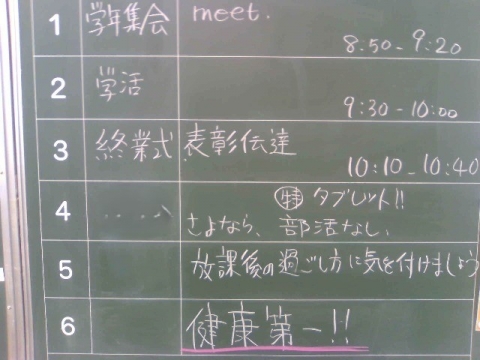 1 学年集会 meet.
8:50-9:20
2 学活
9:30-10:00
3 終業式 表彰伝達
10:10-10:40
特 タブレット!!
4 ‥‥ さよなら、部活なし、
5 放課後の過ごし方に気を付けましょう
6 健康第一!!